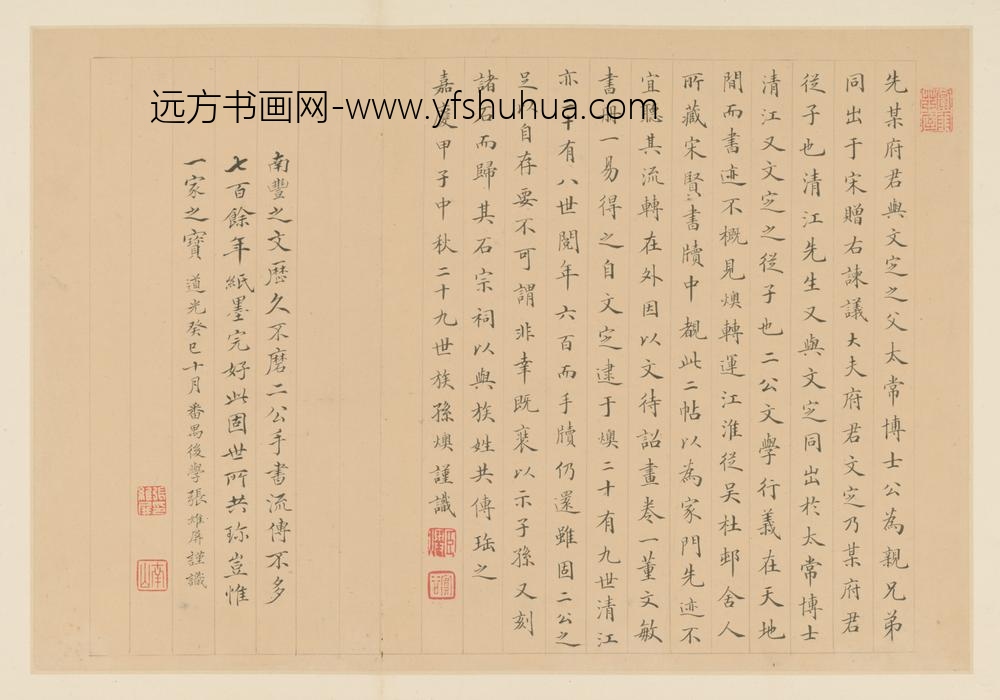 先某府君與文定之父太常博士公為親兄弟
同出于宋贈右諫議大夫府君文定乃某府君
從子也清江先生又與文定同出於太常博士
清江又文定之從子也二公文學行義在天地
間而書迹不概見燠轉運江淮從吴杜邨舍人
所藏宋賢書牘中覩此二帖以為家門先迹不
宜聽其流轉在外因以文待詔畫卷一董文敏
書冊一易得之自文定逮于燠二十有九世清江
亦廿有八世閱年六百而手牘仍還雖固二公之
足以自存要不可謂非幸既裝以示子孫又刻
諸石而歸其石宗祠以與族姓共傳珤之
嘉慶甲子中秋二十九世族孫燠謹識
南豐之文歷久不磨二公手書流傳不多
七百餘年紙墨完好此固世所共珍豈惟
一家之寶 道光癸巳十月番禺後學張維屏謹識
远方书画网-www.yfshuhua.com